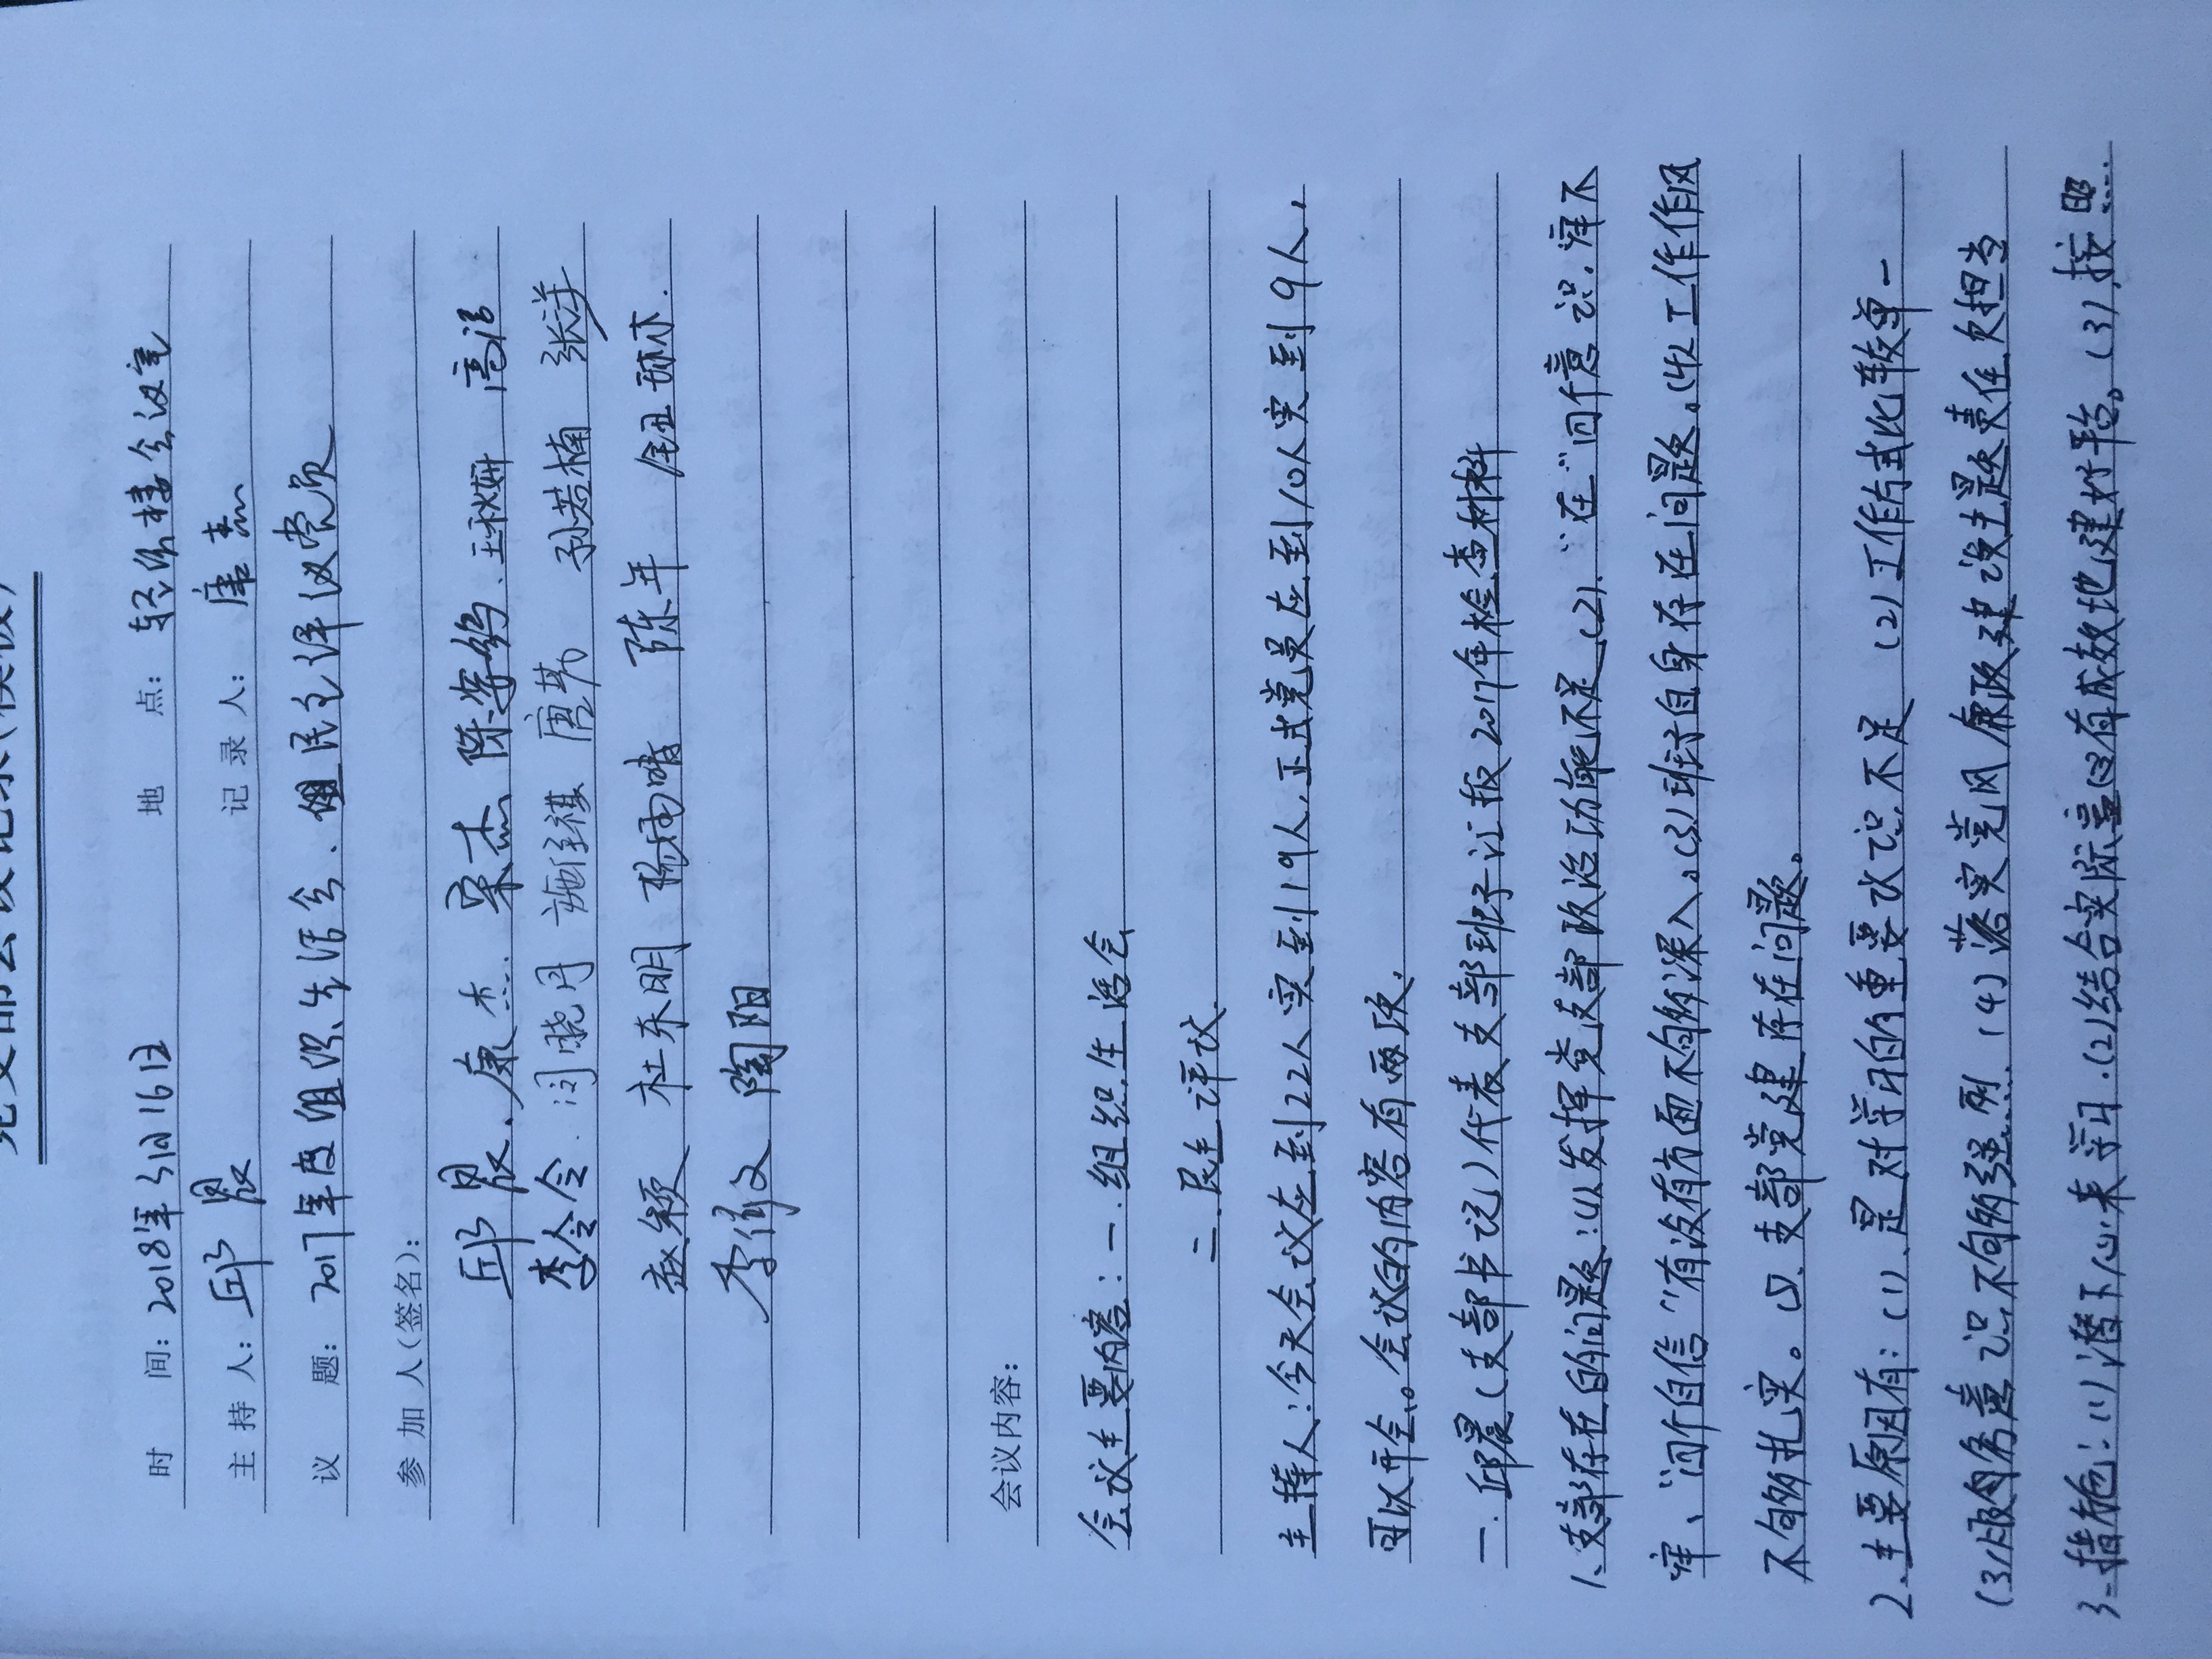 党支部会议记录(模板)
时 间: 2018年3月16日 地 点: 轻纺楼会议室
主 持 人: 邱晨 记 录 人: 康杰
议 题: 2017年度组织生活会、民主评议党员
参 加 人(签名):
邱晨、康杰 宋杰 陈 高
李令令 闫晓丹 施 唐 孙若楠 张洋
赵颖 杜东明 杨雨晴 陈年
李俊文 陶阳
会议内容:
会议主要内容:一、组织生活会
二、民主评议
主持人:今天会议应到22人实到19人,正式党员应到10人实到9人,
可以开会。会议的内容有两项.
一、邱晨(支部书记)代表支部班子汇报2017年检查材料
1、支部存在的问题:(1)发挥党支部政治功能不足 (2). “四个意识
“四个自信”有没有方面不够深入。(3)班子自身存在问题。(4)工作作风
不够扎实。(5). 支部党建存在问题。
2、主要原因有:(1). 是对学习的重要认识不足 (2)工作方式比较单一
(3)服务意识不够强烈. (4)落实党风廉政建设主题责任欠担当
3、措施:(1)潜下心来学习.(2)结合实际富有成效地建好平台。(3)按照